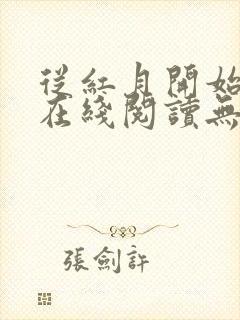 從紅月開始
在綫閱讀無
張劍許